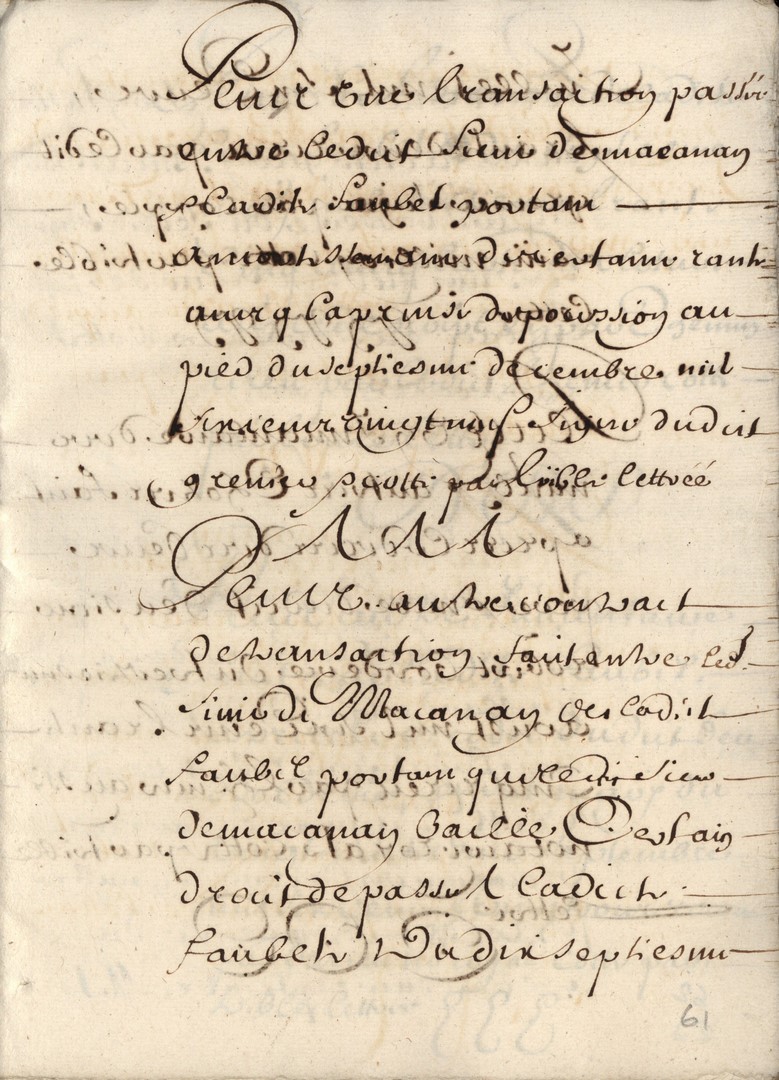 Plus une transaction passée
entre ledict sieur de macanan
et ladicte faubel portant
amortissement d'une certaine rante
avecq la prinse de possession au
pied du septiesme decembre mil
six cens vingt neuf signé dudict
grenier cotté par libelle lettréé
l l l
Plus autre contract
de transaction fait entre led
sieur de Macanan et ladicte
faubel portant que ledit sieur
de macanan baille certain
droit de passer a ladicte
faubele du dix septiesme
61